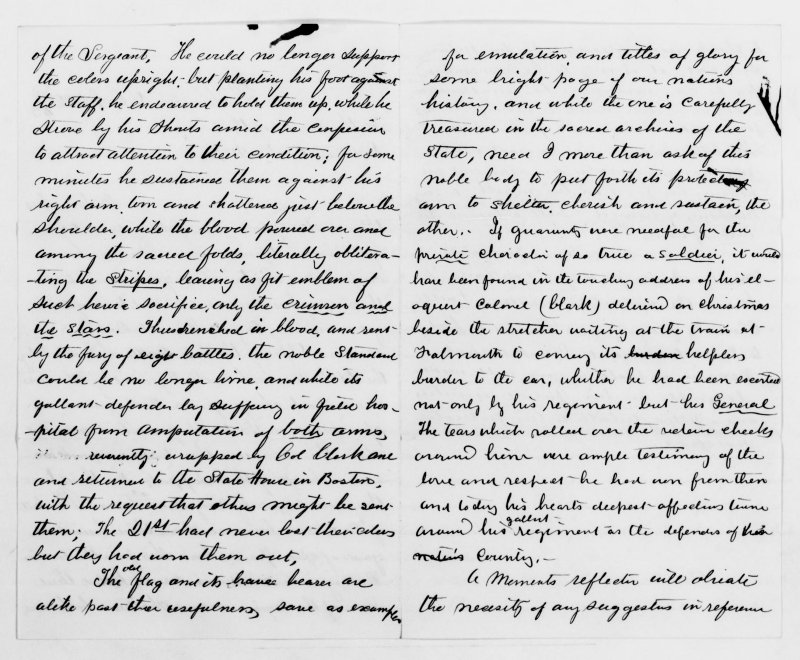 of the Sergeant. He could no longer support
the colors upright but planting his foot against
the staff, he endeavored to hold them up, while he
strove by his shouts amid the confusion
to attract attention to their condition; for some
minutes he sustained them against his
right arm torn and shattered just below the
shoulder, while the blood poured over and
among the sacred folds, literally oblitera-
-ting the stripes, leaving as fit emblem of
such heroic sacrifice, only the crimson and
the stars. Thus drenched in blood, and rent
by the fury of eight battles, the noble standard
could be no longer borne, and while its
gallant defender lay suffering in field hos-
-pital from amputation of both arms,
reverently wrapped by Col Clark and
and returned to the State House in Boston,
with the request that others might be sent
them; The 21st had never lost their colors
but they had worn them out,
The old flag and its brave bearer are
alike past their usefulness, save as examples
for emulation, and titles of glory for
some bright page of our nations
history, and while the one is carefully
treasured in the sacred archives of the
State, need I more than ask of this
noble body to put forth its protecting
arm to shelter, cherish and sustain, the
other. If guaranty were needful for the
private character of so true a soldier, it would
have been found in the touching address of his el-
oquent Colonel (Clark) delivered on Christmas
beside the stretcher waiting at the train at
Falmouth to convey its burden helpless
burden to the car, whither he had been escorted
not only by his regiment but his General
The tears which rolled over the veteran cheeks
around him were ample testimony of the
love and respect he had won from them
and today his hearts deepest affections twine
around his gallant regiment as the defenders of their
nations Country.-
A Moments reflection will obviate
the necessity of any suggestions in reference